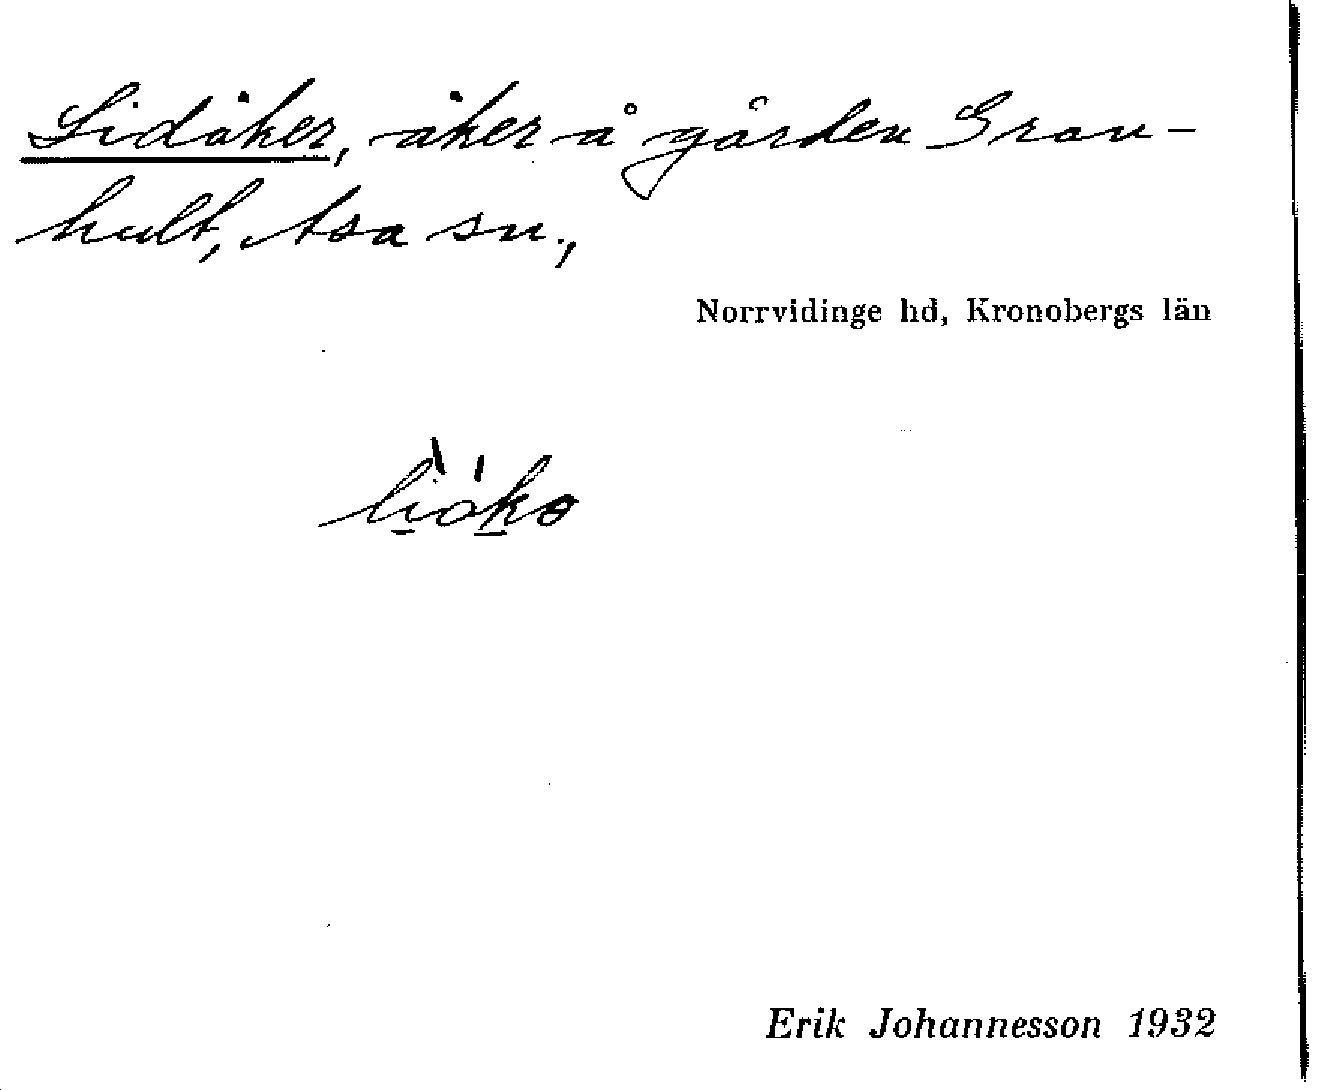 Lidåker, åker å gården Gran-
hult, Asa sn.,
Norrvidinge hd, Kronobergs län
Erik Johannesson 1932